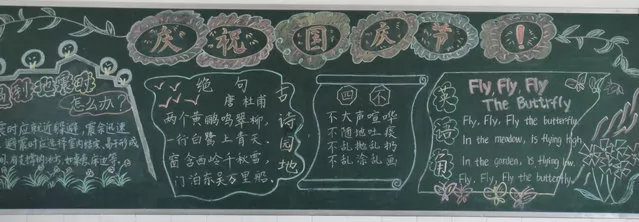 庆祝国庆节！
遇到地震
怎么办？
绝句
唐 杜甫
两个黄鹂鸣翠柳，
一行白鹭上青天，
窗含西岭千秋雪，
门泊东吴万里船。
古诗园地
四不
不大声喧哗
不随地吐痰
不乱抛乱扔
不乱涂乱画
英语角
Fly, Fly, Fly
The Buttrfly
Fly, Fly, Fly the butterfly
In the meadow, is flying high
In the garden, is flying low,
Fly, Fly, Fly the butterfly.